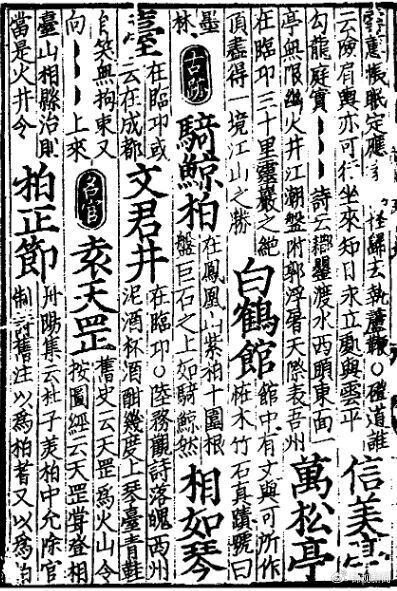 怪歸去執 鞭○磴道誰
云險肩輿亦可行坐來知日永立處與雲平
信美亭
勾龍庭實 詩云 渡水西頭東面一
亭無限幽火井江潮盤附郭浮屠天際表吾州
萬松亭
在臨邛三十里靈巖之絶
頂盡得一境江山之勝
白鶴館
館中有文與可所作
枯木竹石真蹟號曰
墨
林
古跡
騎鯨柏
在鳳凰山紫柏十圍根
盤巨石之上如騎鯨然
相如琴
臺
在臨邛或
云在成都
文君井
在臨邛○陸務觀詩落魄西州
泥酒杯酒酣幾度上琴臺青鞋
自笑無拘束又
向 上來
名宦
袁天罡
舊史云天罡爲火山令
按圖經云天罡嘗登相
臺山相縣治則
當是火井令
柏正節
陽集云杜子美柏中允除官
制詩舊注以爲柏耆又以爲柏